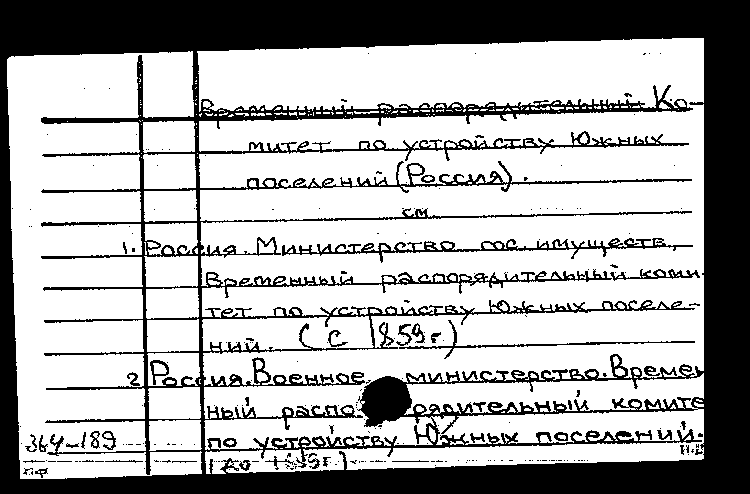 Временный распорядительный Ко-
митет по устройству Южных
поселений (Россия).
см
1. Россия. Министерство гос. имуществ,
Временный распорядительный коми-
тет по устройству Южных поселе-
ний. (с 1859г)
2 Россия. Военное министерство. Времен
ный распорядительный комите
364-189 по устройству Южных поселений.
(до 1859г).